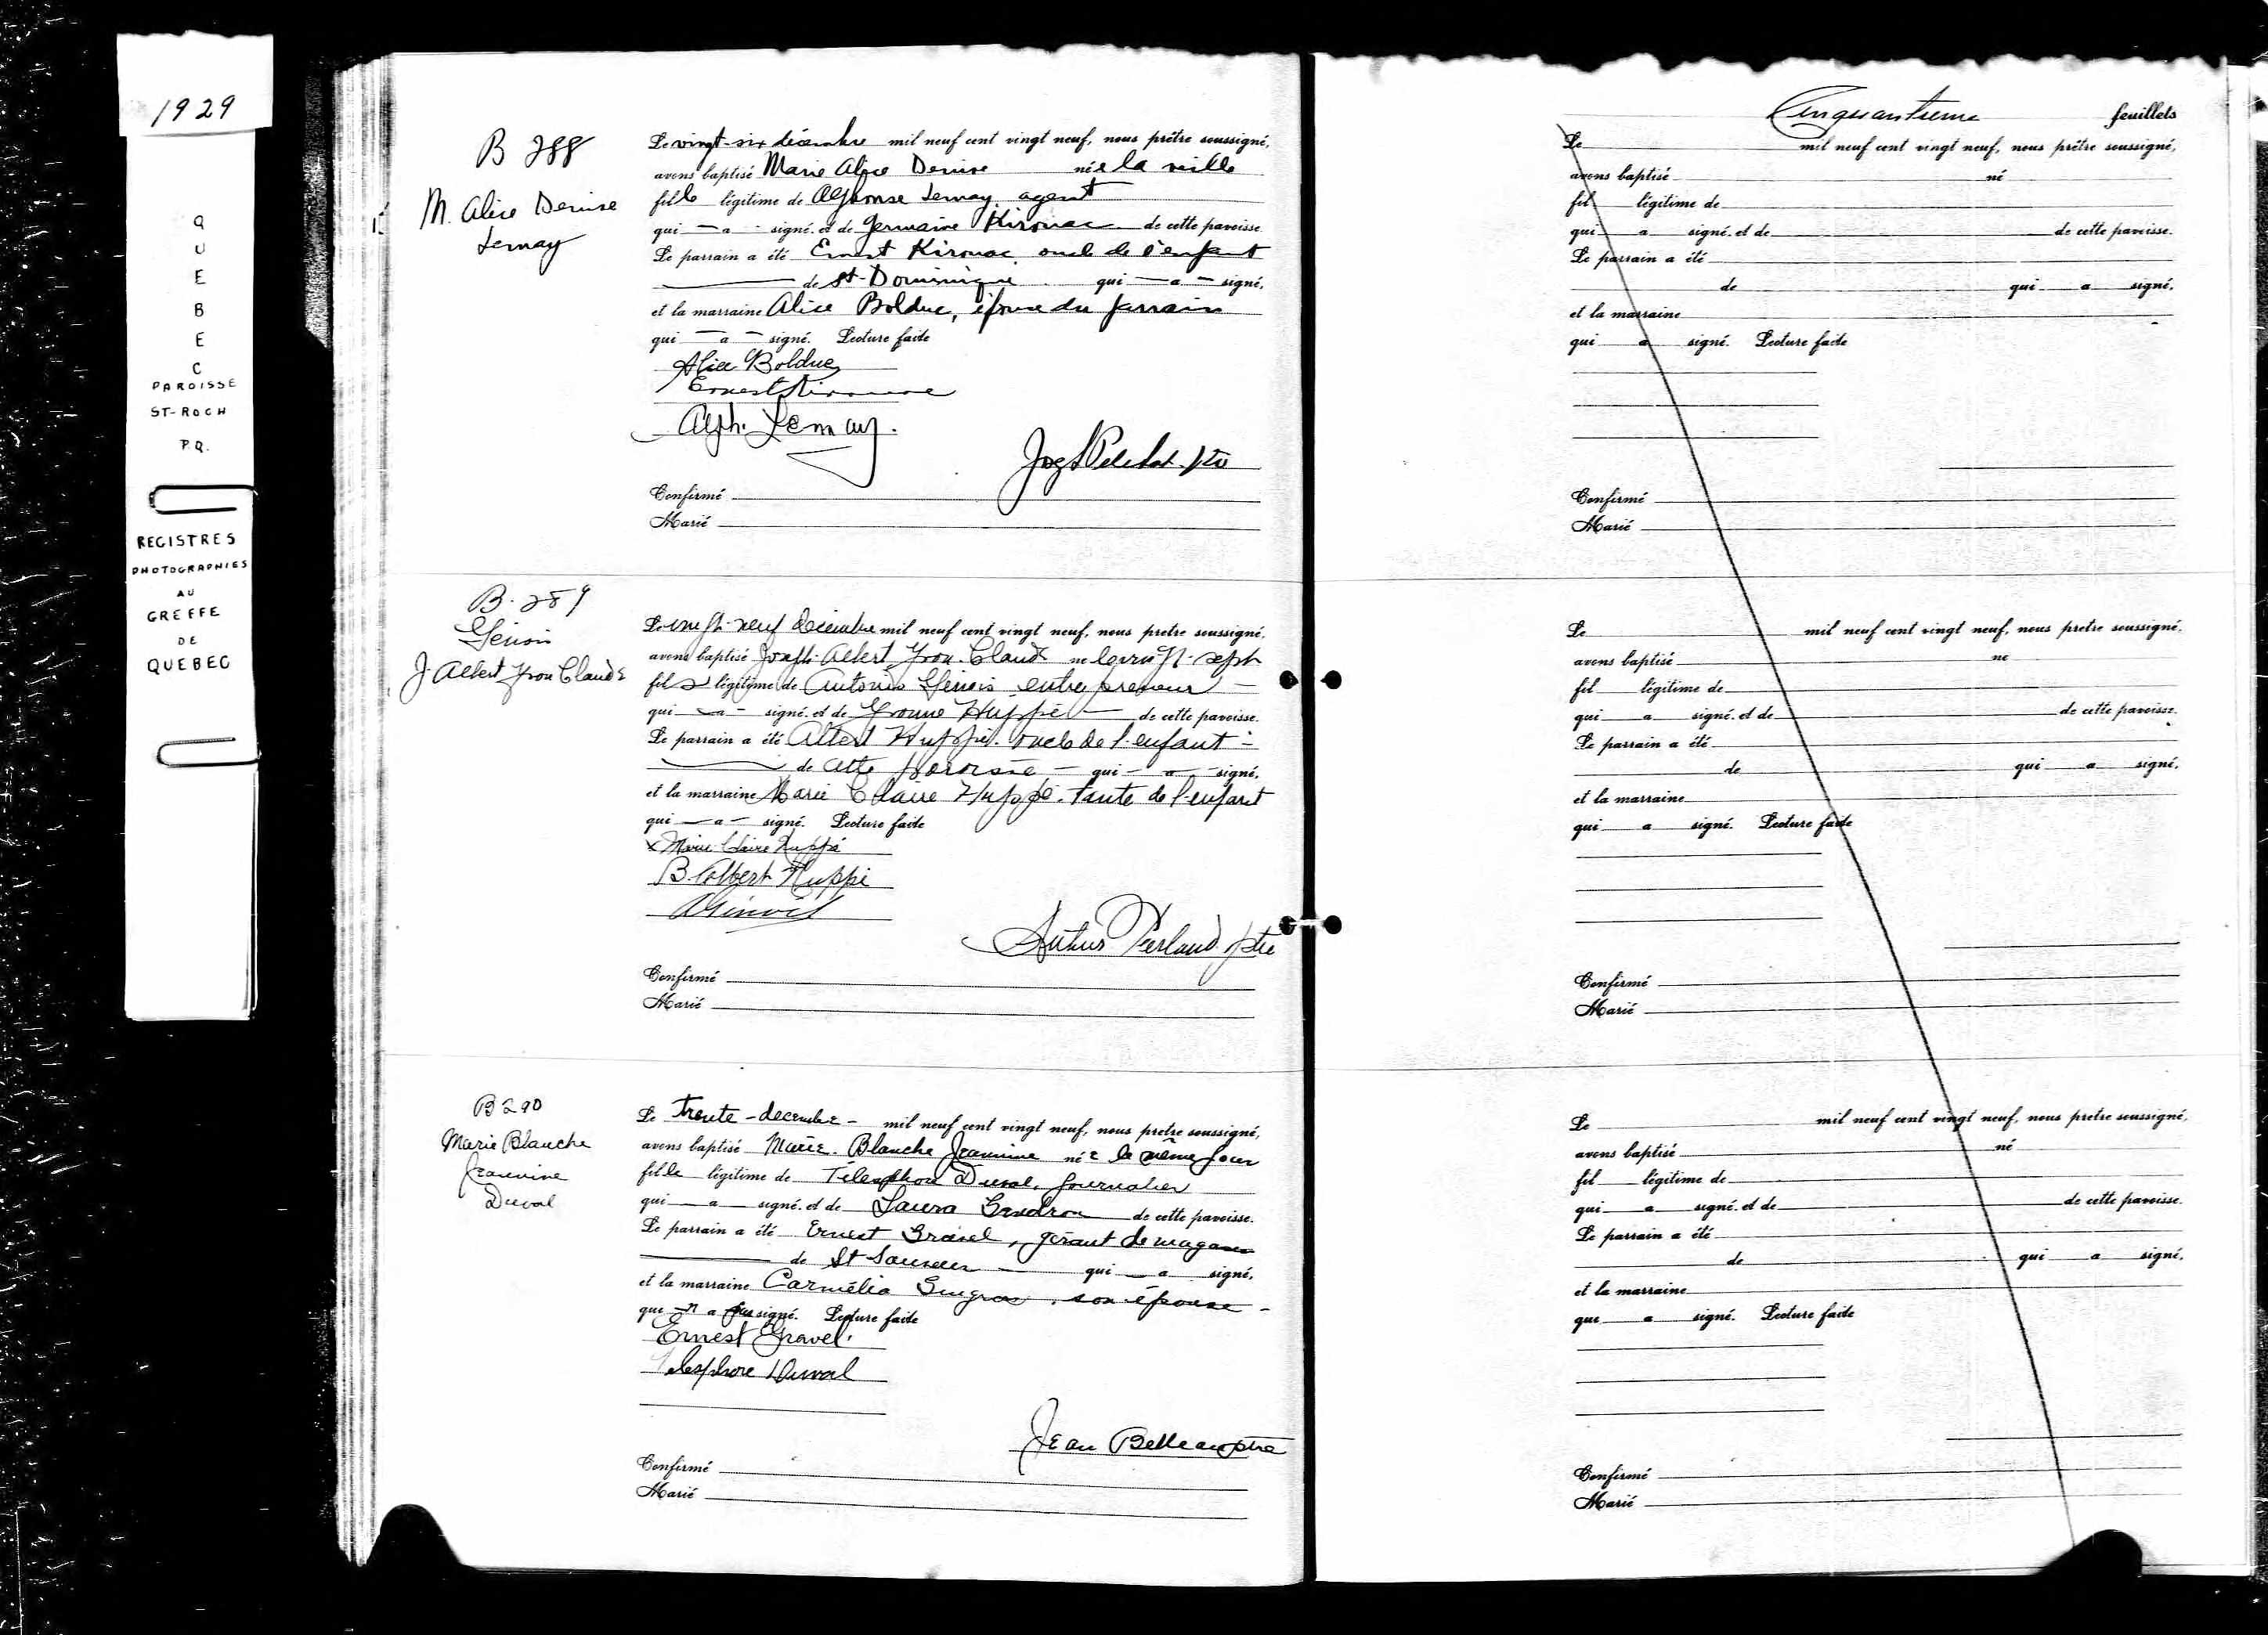 1929
QUEBEC
PAROISSE
ST-ROCH
P.Q.
REGISTRES
PHOTOGRAPHIES
AU
GREFFE
DE
QUEBEC
B 288
M. Alice Denise
Lemay
Le vingt-six décembre mil neuf cent vingt neuf, nous prêtre soussigné,
avons baptisé Marie Alice Denise née la veille
fille légitime de Alphonse Lemay, agent
qui — a — signé. et de Germaine Kirouac de cette paroisse.
Le parrain a été Ernest Kirouac, oncle de l'enfant
de St-Dominique qui — a — signé,
et la marraine Alice Bolduc, épouse du parrain
qui — a — signé. Lecture faite
Alice Bolduc
Ernest Kirouac
Alph. Lemay.
Confirmé
Marié
B. 289
Genois
J. Albert Yvon Claude
Le vingt-neuf décembre mil neuf cent vingt neuf, nous pretre soussigné,
avons baptisé Joseph Albert Yvon Claude ne le vingt-sept
fils légitime de Antonio Genois entrepreneur —
qui — a — signé. et de Yvonne Huppé — de cette paroisse.
Le parrain a été Albert Huppé. oncle de l'enfant —
de cette paroisse — qui — a — signé,
et la marraine Marie Claire Huppé. tante de l'enfant
qui — a — signé. Lecture faite
x Marie Claire Huppé
B. Albert Huppé
A Genois
Arthur Ferland ptre
Confirmé
Marié
B 290
Marie Blanche
Jeannine
Duval
Le trente - decembre - mil neuf cent vingt neuf, nous pretre soussigné,
avons baptisé Marie. Blanche Jeannine née le même jour
fille légitime de Télesphore Duval, journalier
qui — a — signé. et de Laura Gendron de cette paroisse.
Le parrain a été Ernest Gravel, gérant de magasin
de St Sauveur — qui — a signé,
et la marraine Carmélia Gingras, son épouse -
qui n'a pas signé. Lecture faite
Ernest Gravel
Telesphore Duval
Jean Belleau ptre
Confirmé
Marié
Cinquantieme feuillets
Le mil neuf cent vingt neuf, nous prêtre soussigné,
avons baptisé né
fil légitime de
qui a signé. et de de cette paroisse.
Le parrain a été
de qui a signé,
et la marraine
qui a signé. Lecture faite
Confirmé
Marié
Le mil neuf cent vingt neuf, nous pretre soussigné,
avons baptisé ne
fil légitime de
qui a signé. et de de cette paroisse.
Le parrain a été
de qui a signé,
et la marraine
qui a signé. Lecture faite
Confirmé
Marié
Le mil neuf cent vingt neuf, nous pretre soussigné,
avons baptisé né
fil légitime de
qui a signé. et de de cette paroisse.
Le parrain a été
de qui a signé,
et la marraine
qui a signé. Lecture faite
Confirmé
Marié